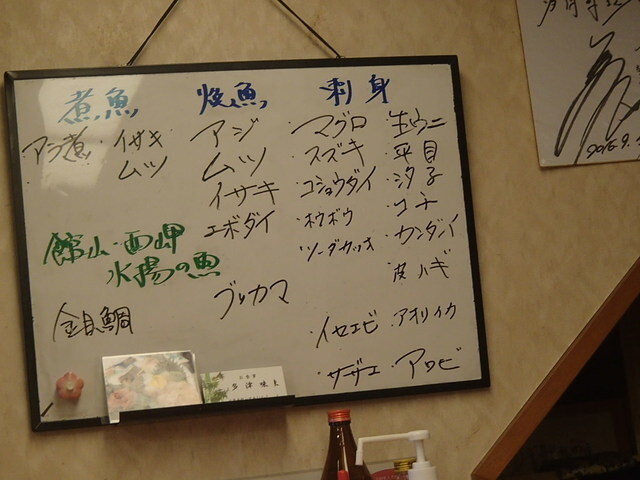 煮魚
アラ煮 ・イサキ
・ムツ
館山・西岬
水揚の魚
金目鯛
焼魚
アジ
ムツ
イサキ
エボダイ
ブリカマ
刺身
マグロ ・生ウニ
・スズキ ・平目
・コショウダイ ・汐子
・ホウボウ ・コチ
・ソーダカツオ ・カンダイ
・皮ハギ
・イセエビ ・アオリイカ
・サザエ ・アワビ